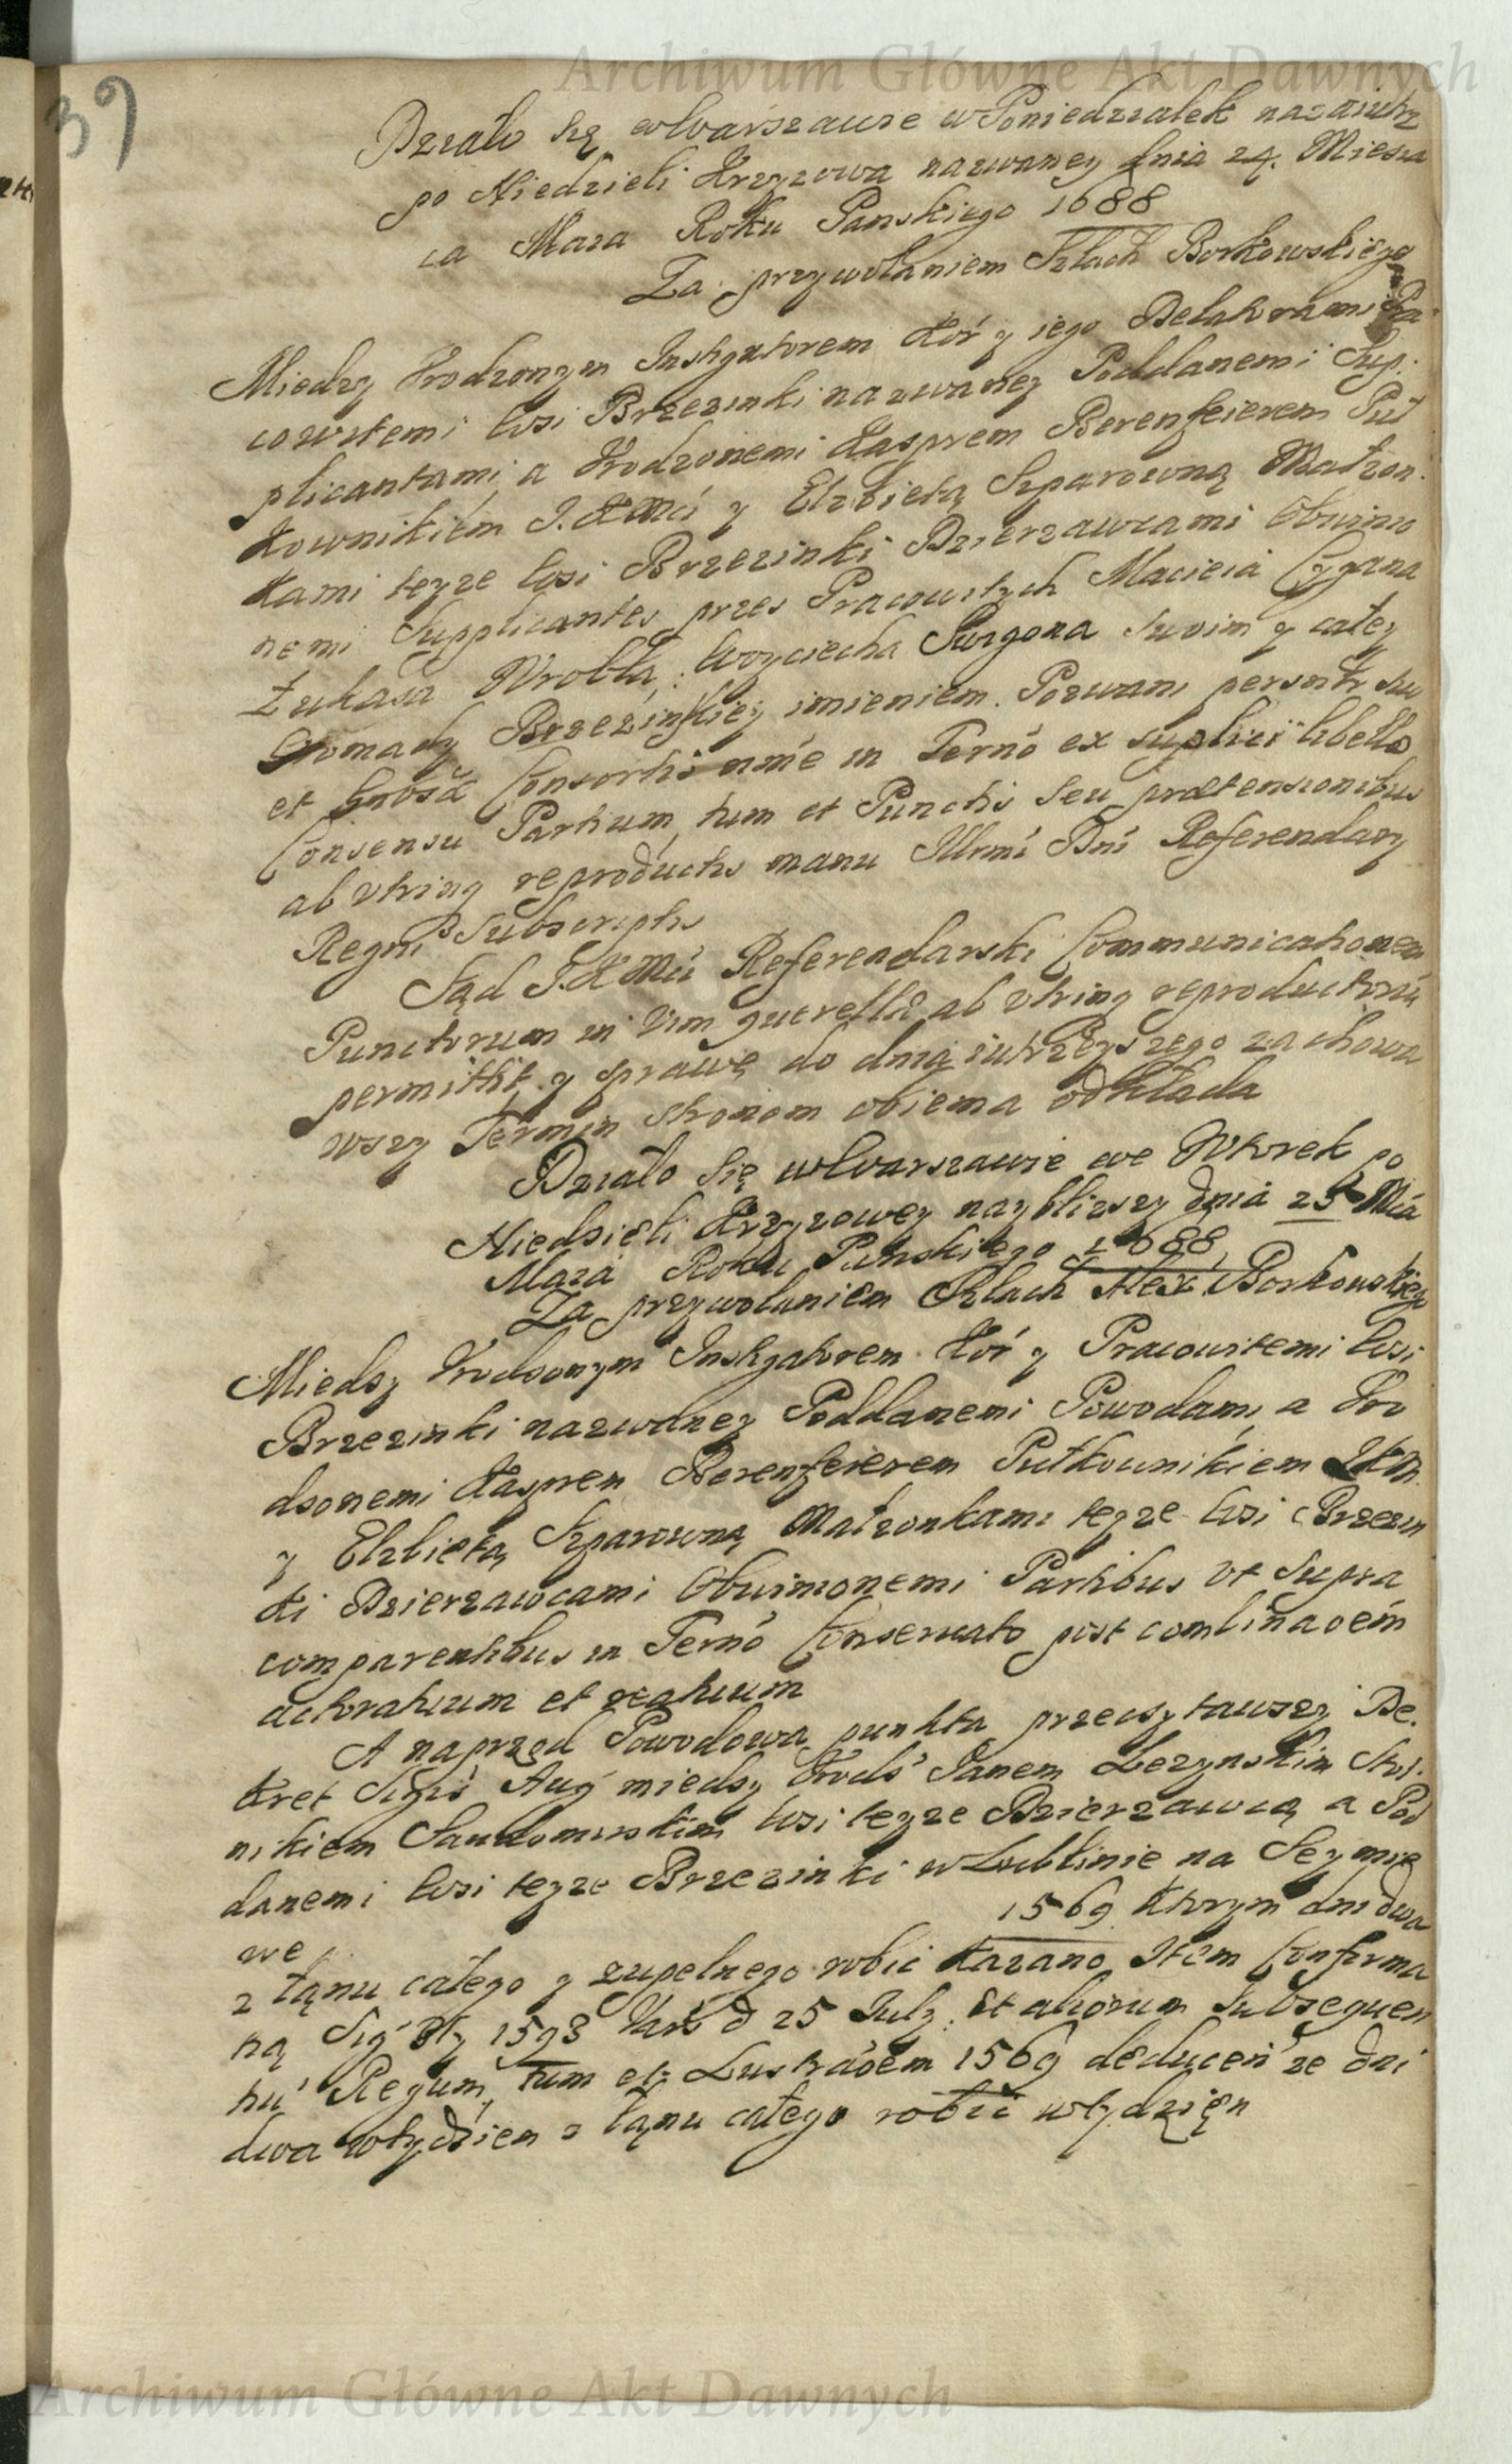 Archiwum Główne Akt Dawnych
39
Działo się w Warszawie w Poniedziałek nazaiutrz
po Niedzieli Krzyzowa nazwaney dnia 24. Miesia
ca Maia Roku Panskiego 1688
Za przywołaniem Szlach Borkowskiego
Miedzy Vrodzonym Instygatorem Kor y iego Delatorami Pra
cowitemi wsi Brzezinki nazwaney Poddanemi Sup.
plicantami, a Vrodzonemi Kasprem Berenfeierem Puł
kownikiem J. K Mci y Elzbietą Szparowną Małzon.
kami teyze wsi Brzezinki Dzierzawcami Obwinio
nemi Supplicantes przes Pracowitych Macieia Cygana
Łukasza Wrobla, Woyciecha Surgona swoim y całey
Gromady Brzezinskiey imieniem. Pozwani personr suo
et Consortis nmie in Termo ex suplici libello
Consensu Partium, tum et Punctis seu prætensionibus
ab vtrinq reproductis manu Illrmi Dni Referendary
Regni Subscriptis
Sąd J. K Mci Referendarski Communicationem
Punctorum in Vim querellæ ab vtrinq reproductorũ
permittit, y sprawę do dnia iutrzeyszego zachowa
wszy Termin stronom obiema odkłada
Działo się w Warszawie we Wtorek po
Niedzieli Krzyzowey nayblizszy dnia 25 Mca
Maia Roku Panskiego 1688
Za przywołaniem Szlach Alex Borkowskiego
Miedzy Vrodzonym Instygatorem Kor y Pracowitemi wsi
Brzezinki nazwaney Poddanemi Powodami, a Vro
dzonemi Kasprem Berenfeierem Pułkownikiem JKM
y Elzbietą Szparowną Małzonkami teyze wsi Brzezin
ki Dzierzawcami Obwinionemi Partibus vt supra
comparentibus in Termo Conseruato post combinaoem
actoratuum et reatuum
A naprzod Powodowa punkta przeczytawszy De.
kret Sigis Aug miedzy Vrodz Janem Lezynskim Stol.
nikiem Sandomirskim wsi teyze Dzierzawcą a Pod
danemi wsi teyze Brzezinki w Lublinie na Seymie
we 1569 Ktorym dni dwa
z łanu całego y zupełnego robic kazano, Item Confirma
ną Sig 1593 Vars d 25 July. Et aliorum subsequen
tiũ Regum, tum et Lustraoem 1569 deducen ze dni
dwa w tydzien z łanu całego robic w tydzięn
Archiwum Główne Akt Dawnych